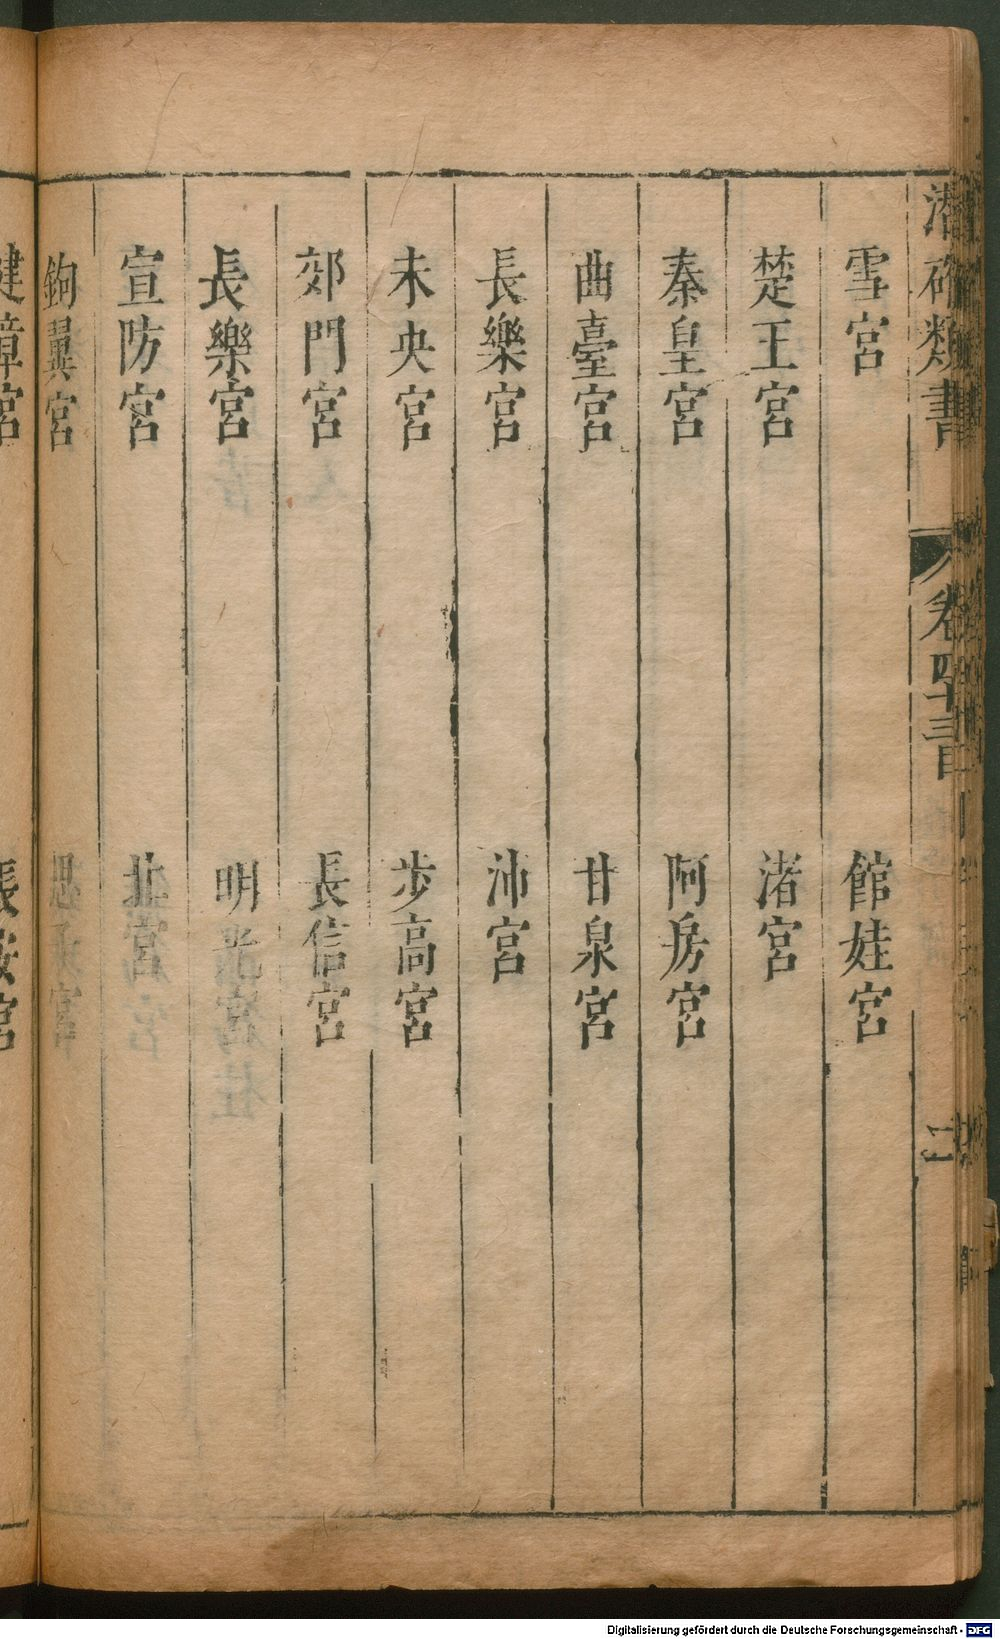 潛確類書
卷四十三目
雪宮 館娃宮
楚王宮 渚宮
秦皇宮 阿房宮
曲臺宮 甘泉宮
長樂宮 沛宮
未央宮 步高宮
郊門宮 長信宮
長樂宮 明光宮
宣防宮 北宮
鉤翼宮 思子宮
建章宮
Digitalisierung gefördert durch die Deutsche Forschungsgemeinschaft - DFG